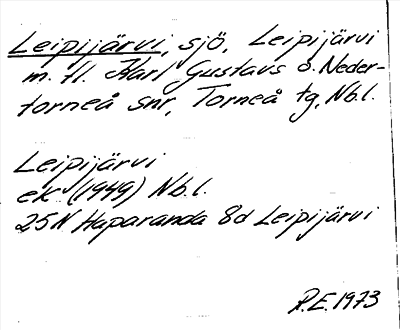 Leipijärvi, sjö, Leipijärvi
m. fl. Karl Gustavs o. Neder-
torneå snr, Torneå tg, Nb.l.
Leipijärvi
ek. (1949) Nb.l.
25N Haparanda 8d Leipijärvi
P.E. 1973